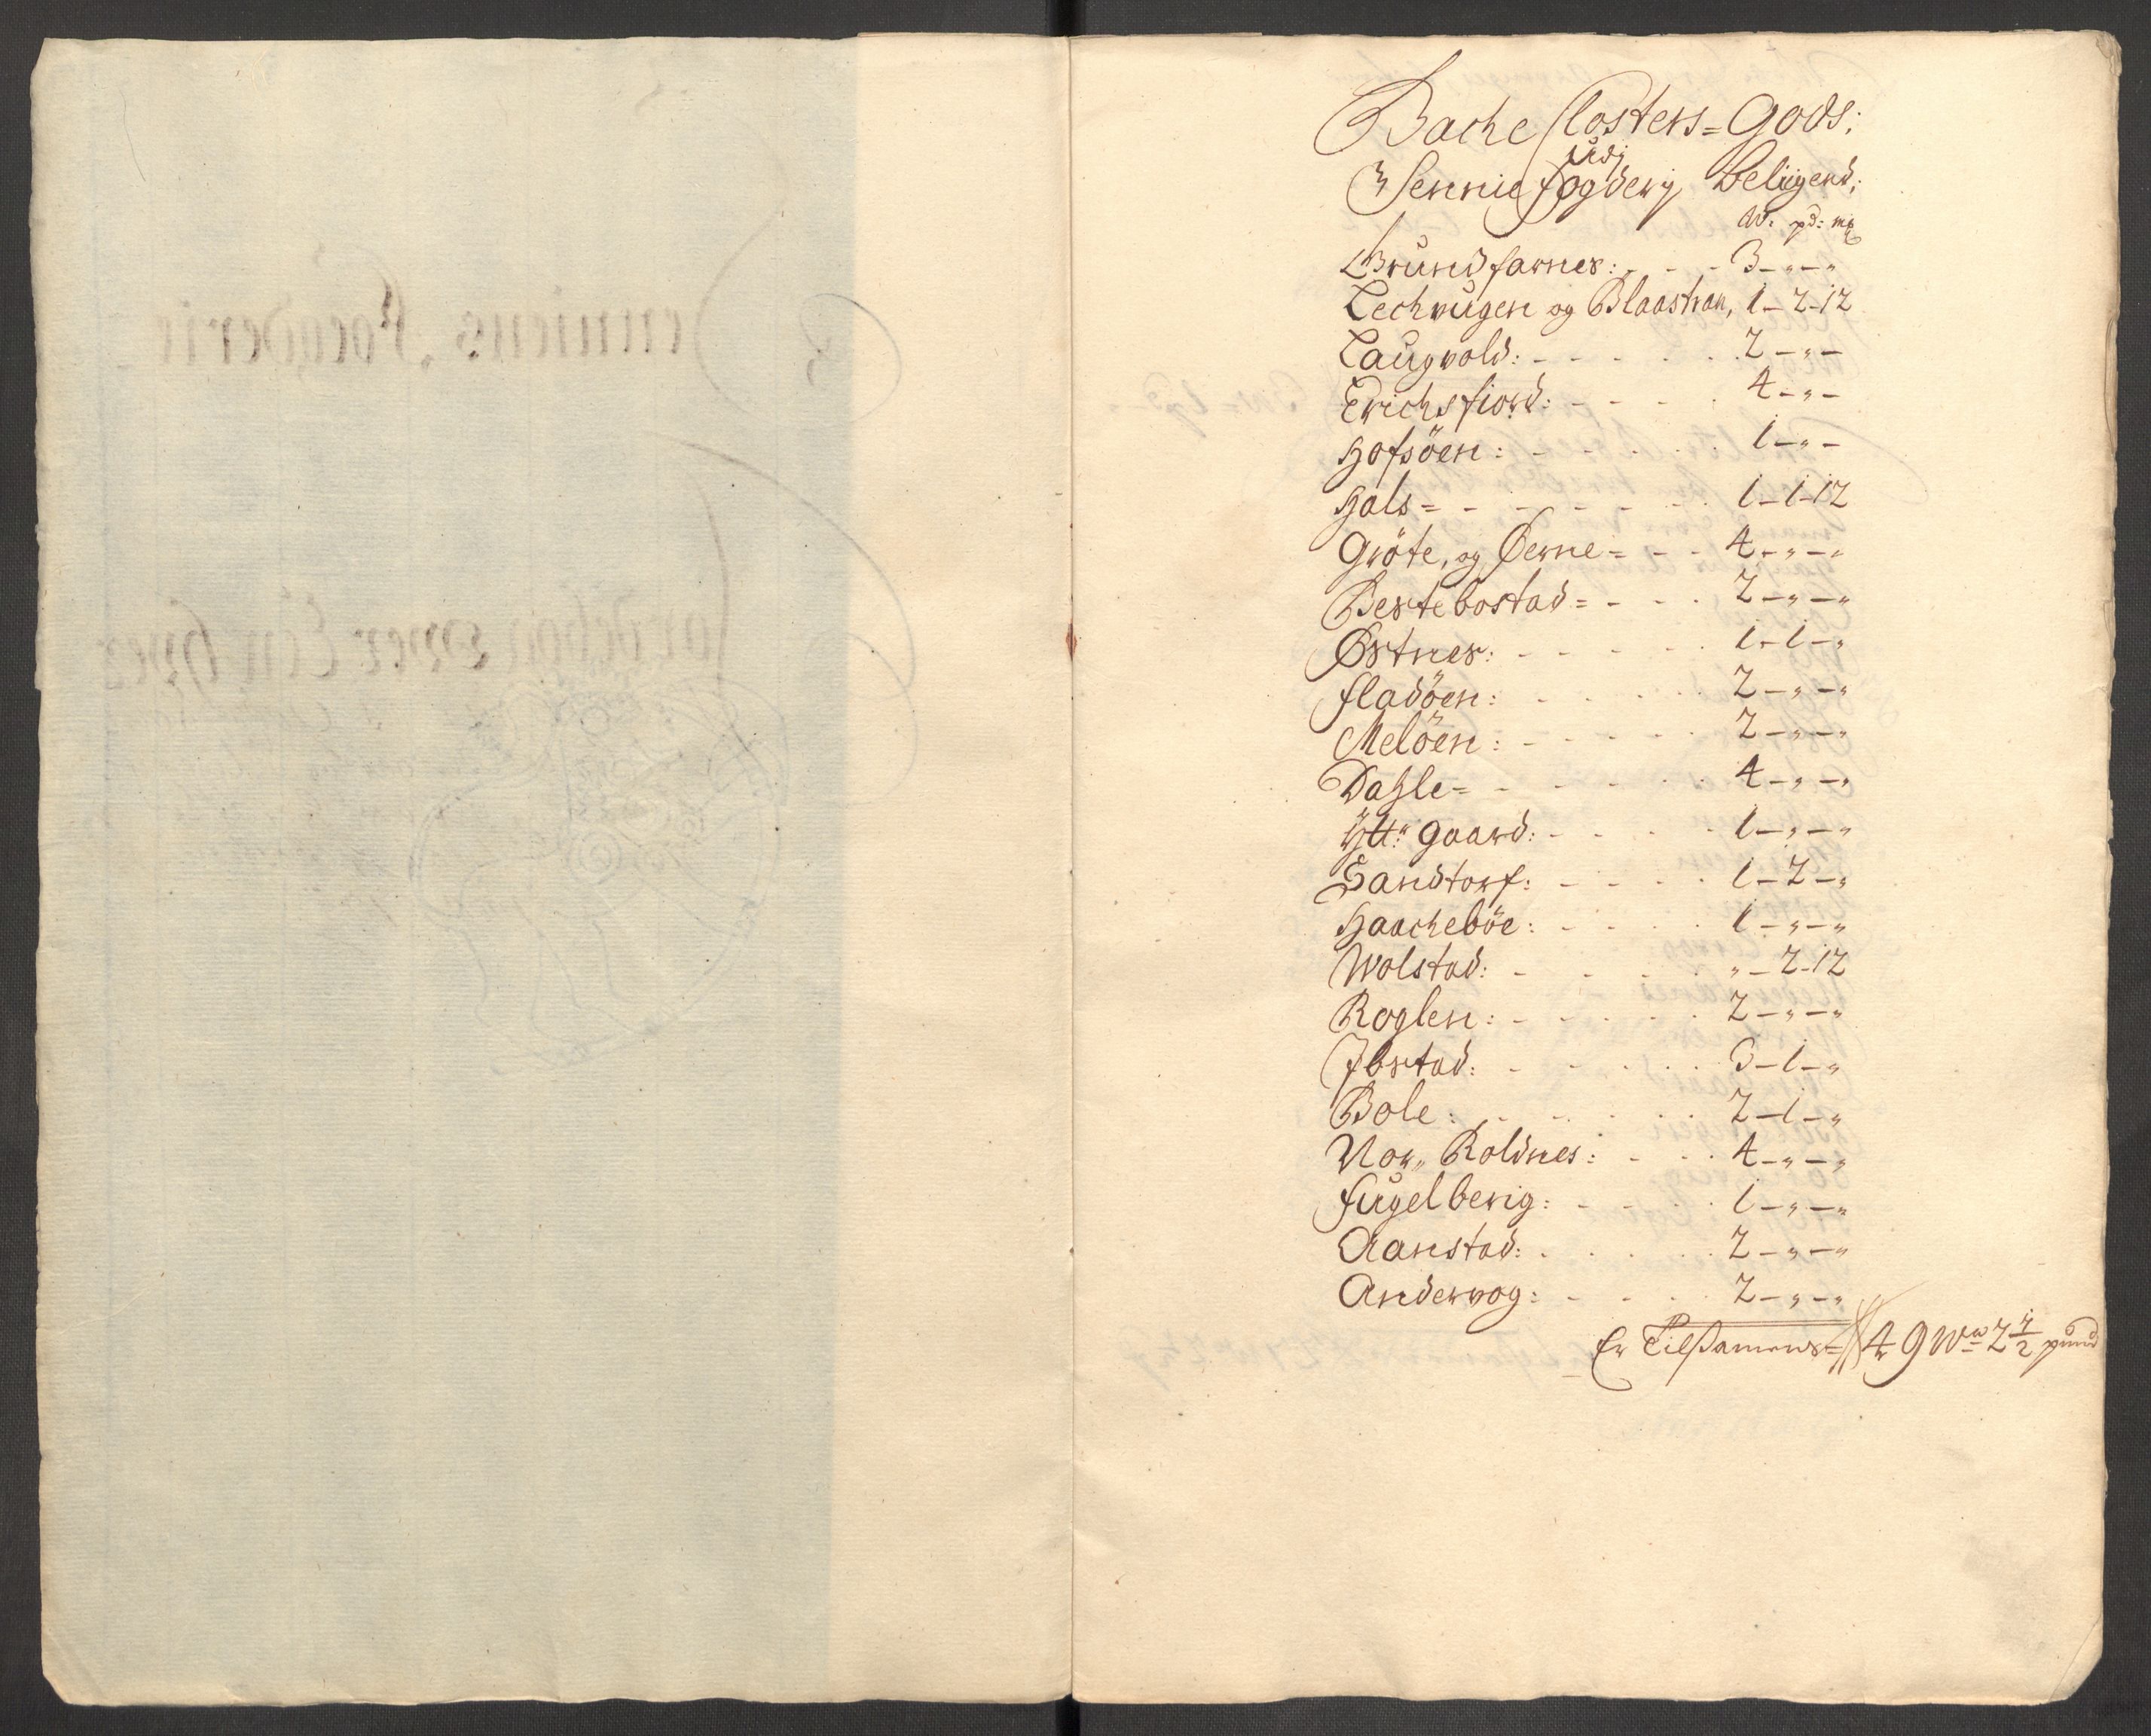 Bache Closters=Gods:
udj
Sennie fogderj Beligend:
W: pd: mk
Brundfarnes: - - - 3-„-„
Lechvugen og Blaastran, 1-2-12
Laugvold: - - - - - 2-„-
Erichsfiord: - - - - 4-„-
Hofsöen: - - - - - 1-„-
Hals= - - - - - - 1-1-12
Gröte, og Øerne= - - 4-„-„
Bestebostad= - - - 2-„-„
Østnes: - - - - - 1-1-„
fladöen: - - - - - 2-„-„
Melöen: - - - - - 2-„-„
Dahle= - - - - - 4-„-„
Ytt: gaard: - - - - 1-„-„
Sandtorf: - - - - 1-2-„
Haacheböe: - - - - 1-„-„
Wolstad: - - - - - „-2-12
Roglen: - - - - - 2-„-„
Ibstad: - - - - - 3-1-„
Bole: - - - - - - 2-1-„
Nor„ Roldnes: - - - 4-„-„
fugelberig: - - - - 1-„-„
Aanstad: - - - - - 2-„-„
Andervog: - - - - 2-„-„
Er Tilsamens= 49 W 2 1/2 pund